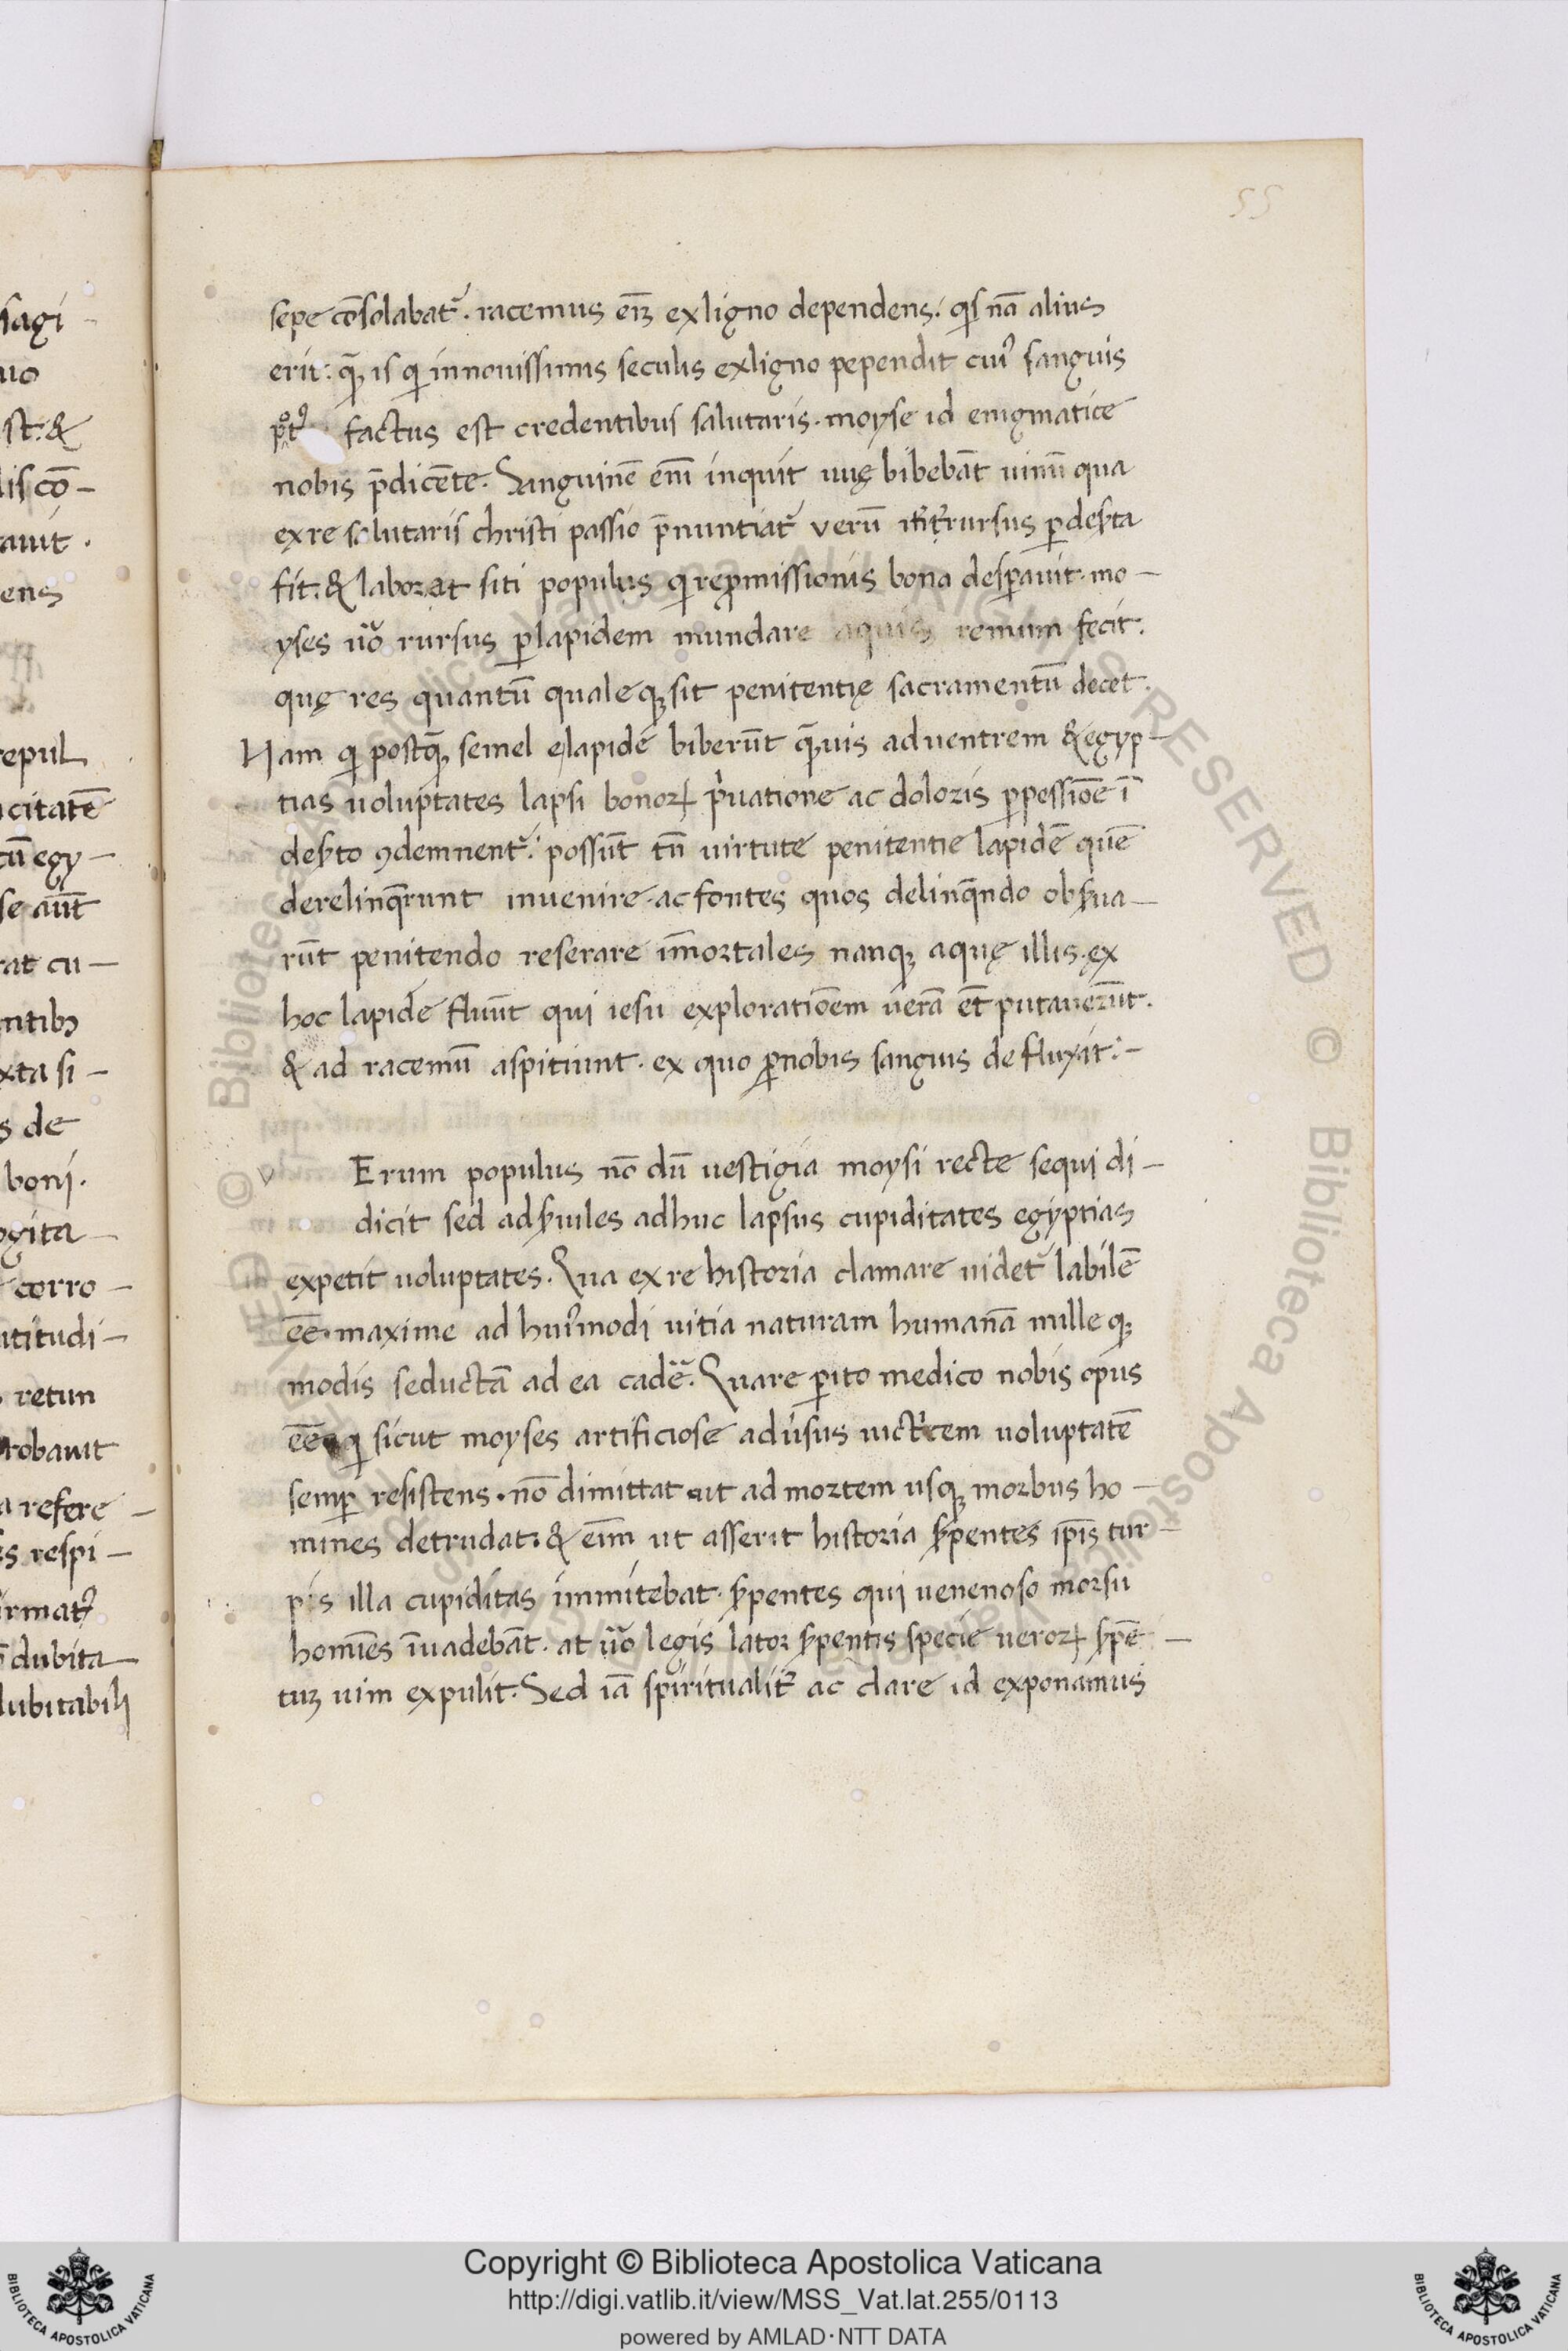 55
sepe cōsolabat᷑. racemus eīʒ ex ligno dependens. qͥs nā alius
erit: qͣꝫ is qͥ in nouissimis seculis ex ligno pependit cuiꝰ sanguis
pͦtꝰ factus est credentibus salutaris. moyse id enigmatice
nobis p̄dicēte. Sanguinē enī inquit uuę bibebāt uinū qua
ex re salutaris christi passio p̄nuntiat᷑ verū rursus ꝑ des̄ta
fit. & laborat siti populus qͥ repromissionis bona desꝑauit. mo-
yses uͦo rursus ꝑ lapidem mundare aquis remum fecit.
quę res quantū qualeqꝫ sit penitentię sacramentū docet.
Nam qͥ postqͣꝫ semel e lapide biberūt qͣꝫuis ad uentrem & egyp-
tias uoluptates lapsi bonoꝝ pͥuatione ac doloris ꝑpessiōe ī
des̄to ꝯdemnent᷑. possūt tn̄ uirtute penitentie lapidē quē
derelinqͣrunt inuenire. ac fontes quos delinqͣndo obs̄ua-
rūt penitendo reserare īmortales nanqꝫ aquę illis. ex
hoc lapide fluūt qui iesu exploratiōem uerā eē putauerūt.
& ad racemū aspitiunt. ex quo ꝓ nobis sanguis defluxit:-
v Erum populus nō dū uestigia moysi recte sequi di-
dicit sed ad s̄uiles adhuc lapsus cupiditates egyptias
expetit uoluptates. Qua ex re historia clamare uidet᷑ labilē
eē. maxime ad huiꝰmodi uitia naturam humanā milleqꝫ
modis seductā ad ea cadē. Quare ꝑito medico nobis opus
eē qͥ sicut moyses artificiose adūsus uictͥcem uoluptatē
semꝑ resistens. nō dimittat ut ad mortem usqꝫ morbus ho-
mines detrudat. & eīm ut asserit historia s̄pentes ip̄is tur-
pis illa cupiditas immitebat. s̄pentes qui uenenoso morsu
homīes īuadebāt. at uͦo legis lator s̄pentis specie ueroꝝ s̄pē-
tuʒ uim expulit. Sed iā spiritualit᷑ ac clare id exponamus
sagi
uo
st: &
lis cō-
auit.
ens
repul
citatē
tū egy-
se aūt
rat cu-
ntibꝫ
xta si-
s de
boni.
ogita-
corro-
utitudi-
retun
robauit
a refere-
s respi-
irmat᷑
dubita-
dubitabili
Copyright © Biblioteca Apostolica Vaticana
http://digi.vatlib.it/view/MSS_Vat.lat.255/0113
powered by AMLAD·NTT DATA